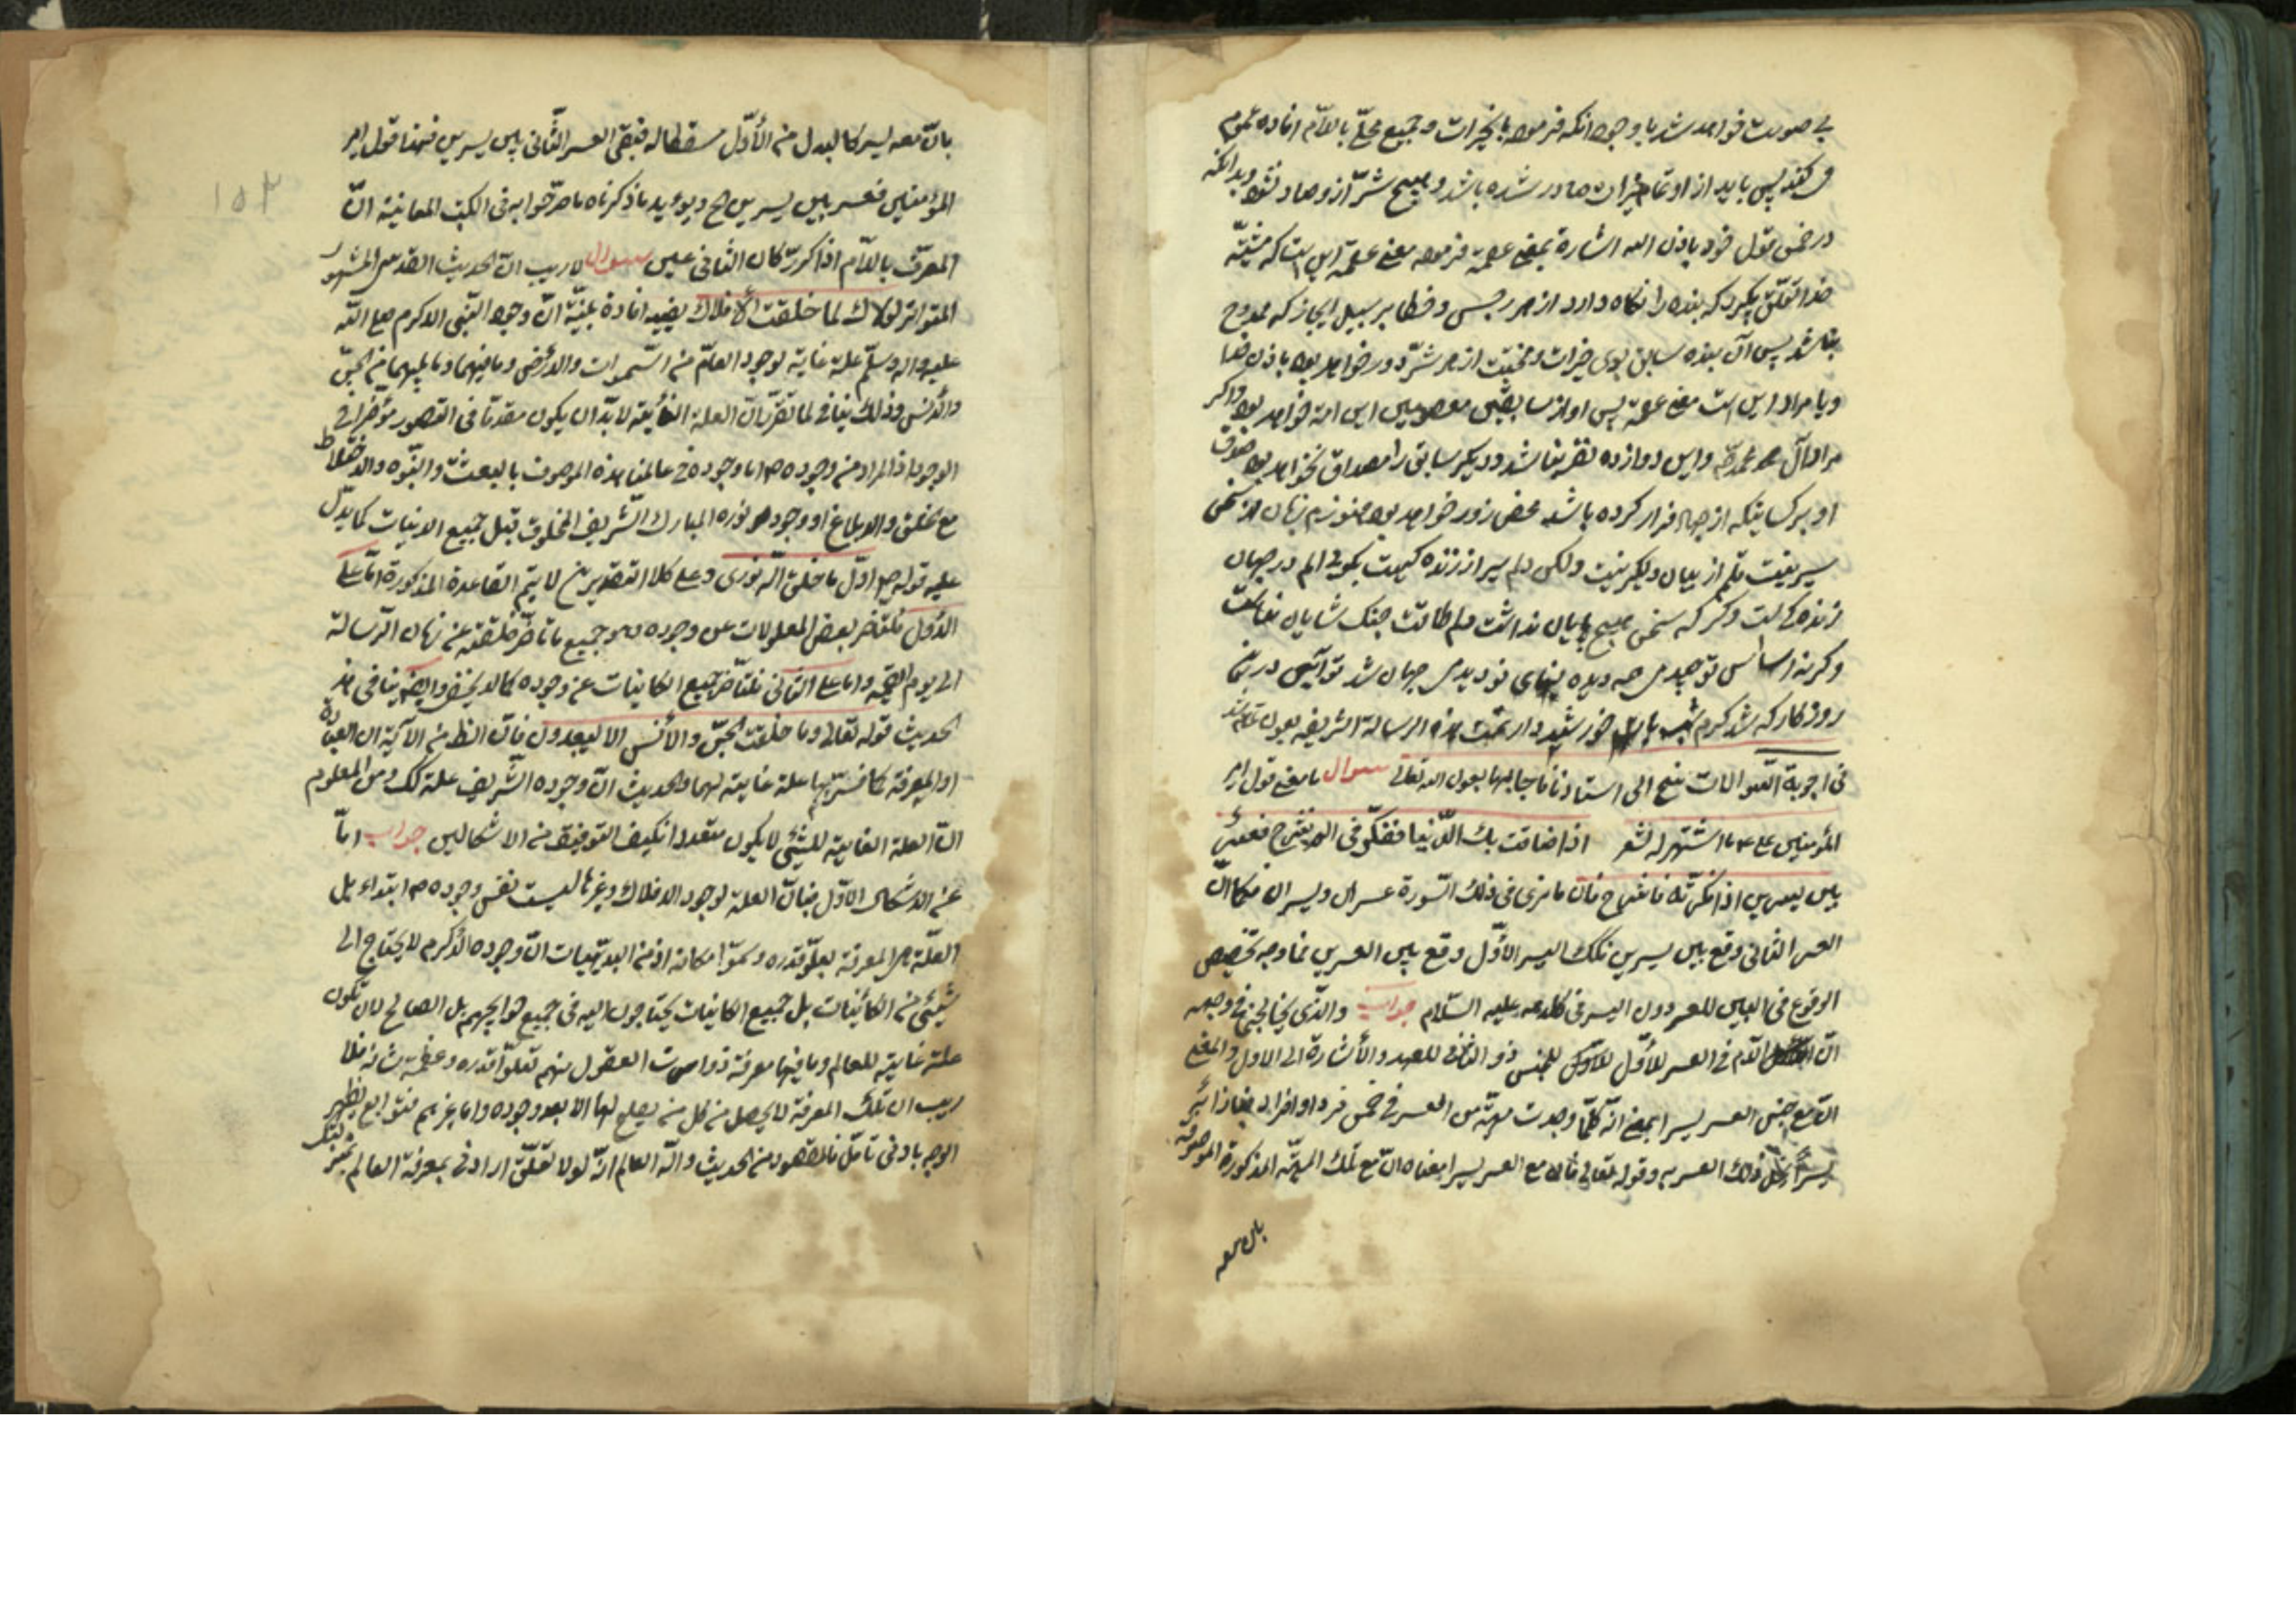 بی صورت خواهد شد با وجود انکه فرموده بالخیرات و جمیع محلّی باللّام افاده عموم
می کند پس باید از او تمام خیرات صادر شده باشد و هیچ شرّ از و صادر نشود و بدانکه
در ضمن قول خود باذن الله اشارة بمعنی عصمة فرموده معنی عصمة این است که مشیّة
خدا تعلّق بگیرد که بنده را نگاه دارد از هر رجس و خطا بر سبیل ایجاز که ممدوح
باشد پس آن بنده سابق بوی خیرات و مجتنب از هر شرّ و در خواهد بود باذن خدا
و یا مراد این است معنی عصمة پس او از سابقین معصومین این امة خواهد بود و اگر
مراد آل محمد و این دوازده نفر نباشد و دیگر سابق را مصداق نخواهد بود
او بر کسانیکه از جهاد فرار کرده باشد محض زور خواهد بود هنوزم زبان از سخن
سیر نیست قلم از بیان دلگیر نیست ولکن دلم سیر از زنده کیست بگوئی الم در جهان
زنده کیست و گرنه سخن هیچ پایان نداشت دلم طاقت جنک شایان نداشت
و گرنه اساس توحیدی همه دیده بنهای نو دیدی جهان شد تو آئین در
روزکار که شد کرم خورشید دار تمّت هذه الرسالة الشریفه بعون
فی اجوبة السؤالات منح الی استاذنا فاجابها بعون الله تعالی سوال ما معنی قول امیر
المؤمنین ع علی ما اشتهر له شعر اذا ضاقت بك الدّنیا ففکّر فی الم نشرح فعسر
بین یسرین اذا فکّرته فافرح فان ما نری فی ذلك السّورة عسران ویسران فکما انّ
العسر الثانی وقع بین یسرین فکذلك الیسر الأوّل وقع بین العسرین فما وجه تخصیص
الوقوع فی البین للعسر دون الیسر فی کلامه علیه السّلام جواب والّذی یختلجنی فی وجهه
انّ اللّام فی العسر الأوّل للجنس وفی الثانی للعهد والأشارة الی الاول والمعنی
انّ مع جنس العسر یسرا بمعنی انّه کلّما وجدت مهیّة من العسر فی ضمن فرد او افراد
یسراً ذلك العسر به وقوله تعالی ثانیا مع العسر یسرا معناه انّ مع تلك المهیّة المذکورة الموصوفة
بان معه
۱۵۳
بانّ معه یسر کالبدل من الأوّل مسقطا له فبقی العسر الثّانی بین یسرین فهذا قول امیر
المؤمنین فعسر بین یسرین ح ویؤید ما ذکرناه ما صرّحوا به فی الکتب المعانیة انّ
المعرّف باللّام اذا کرّر کان الثانی عین سوال لا ریب انّ الحدیث القدسی المشهور
المتواتر لولاك لما خلقت الأفلاك یفید افادة بیّنة انّ وجود النّبی الاکرم صلی اللّه
علیه واله وسلّم علة غایة لوجود العالم من السّموات والأرض وما فیهما وما بینهما من الجنّ
والأنس وذلك ینافی لما تقرّر انّ العلة الغائیة لابدّ ان یکون مقدما فی التصور مؤخرا فی
الوجود اذ المراد من وجوده ص اما وجوده فی عالمنا هذه الموصوف بالبعثة والنبوّه والاختلاط
مع الخلق والابلاغ او وجود نوره المبارك الشّریف المخلوق قبل جمیع الانیات کما یدلّ
علیه قوله ص اوّل ما خلق اللّه نوری وعلی کلا التقدیرین لا یتم القاعدة المذکورة امّا علی
الأول فلتاخر بعض المعلولات عن وجوده وهو جمیع ما تاخّر خلقته عن زمان الرّسالة
الی یوم القیمة واما علی الثانی فلتأخّر جمیع الکاینات عن وجوده کما لا یخفی وایضاً ینافی هذ
الحدیث قوله تعالی وما خلقت الجنّ والأنس الا لیعبدون فانّ الظ من الآیة ان العبادة
او المعرفة کما فسّر بها علة غایة لهما والحدیث انّ وجوده الشّریف علة کك ومن المعلوم
انّ العلة الغایة للشیء لا یکون متعددا فکیف التوفیق من الاشکالین جواب امّا
عن الاشکال الاوّل فبانّ العلة لوجود الافلاك وغیرها لیست نفس وجوده ص ابتداء بل
العلّة هی المعرفة بعلوّ قدره وسموّ مکانه اذ من البدیهیات انّ وجوده الاکرم لا یحتاج الی
شیئ من الکائنات بل جمیع الکاینات یحتاجون الیه فی جمیع حوایجهم بل الصالح لان تکون
علة غایة للعالم وما فیها معرفة ذوات العقول منهم بعلوّ قدره وعظمة شانه فلا
ریب ان تلك المعرفة لا یحصل من کل من یصلح لها الا بعد وجوده واما غیرهم فتوابع یظهر
الوجه بادنی تأمّل فالمقصود من الحدیث واللّه العالم انّه لولا تعلّق ارادتی بمعرفة العالم